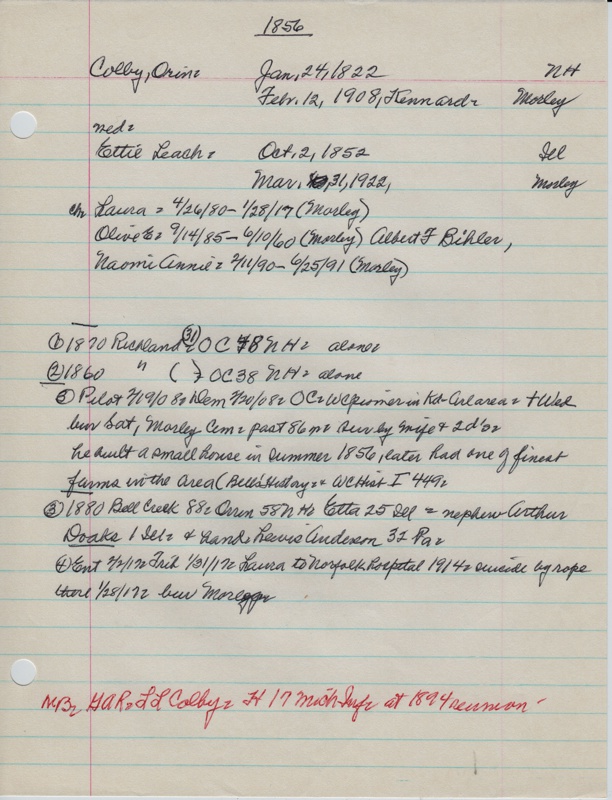 1856
Colby, Orin= Jan. 24, 1822 NH
Febr. 12, 1908, Kennard= Morley
med=
Ettie Leach= Oct. 2, 1852 Ill
Mar. 31, 1922, Morley
ch= Laura = 4/26/80 - 1/28/17 (Morley)
Olive E= 9/14/85 - 6/10/60 (Morley) Albert F Bihler,
Naomi Annie= 2/11/90 - 6/25/91 (Morley)
① 1870 Richland (31) = OC 48 NH= alone=
② 1860 " ( ) = OC 38 NH= alone
⑤ Pilot 2/19/08= Dem 2/20/08= OC= WC pioneer in Kd- Arl area= + Wed
bur Sat, Morley Cem= past 86 m= surv by wife + 2 d's=
he built a small house in summer 1856, later had one of finest
farms in the area (Bell's History= & WC Hist I 449=
③ 1880 Bell Creek 88= Orrin 58 NH= Etta 25 Ill = nephew Arthur
Doaks 1 Ill= & hand= Lewis Anderson 32 Pa=
④ Ent 2/2/17= Trib 1/31/17= Laura to Norfolk hospital 1914= suicide by rope
there 1/28/17= bur Morley=
NB= GAR= L L Colby= H 17 Mich Inf= at 1894 reunion-